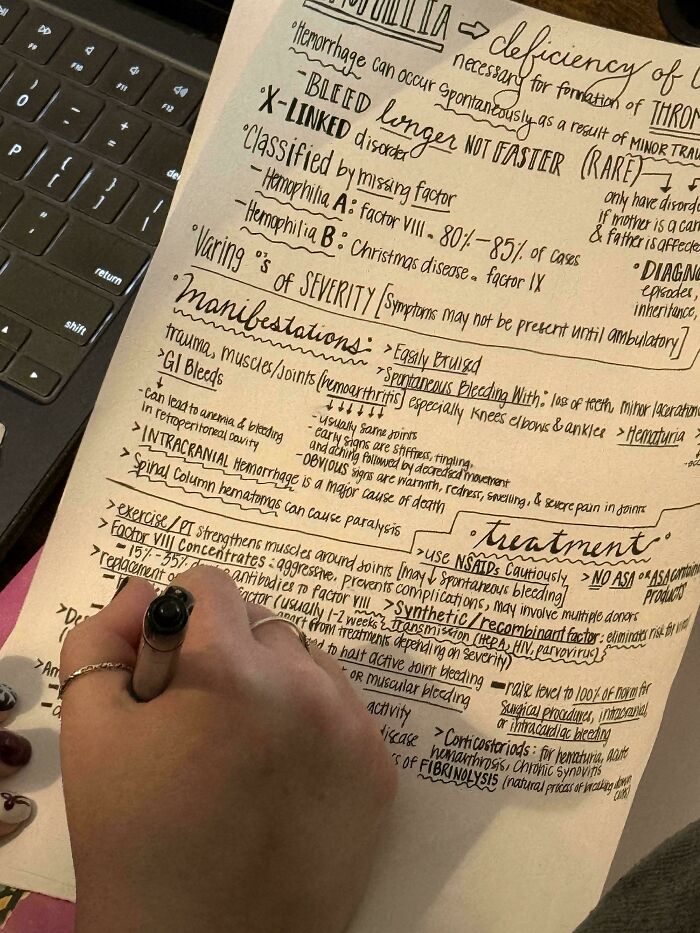 deficiency of
necessary for formation of THROM
°Hemorrhage can occur spontaneously as a result of MINOR TRAU
-BLEED longer NOT FASTER (RARE)
°X-LINKED disorder
only have disord
if mother is a car
& father is affecte
°Classified by missing factor
-Hemophilia A: factor VIII - 80%-85% of cases
-Hemophilia B: Christmas disease - factor IX
°DIAGN
episodes,
inheritance,
°Varing °'s of SEVERITY [symptoms may not be present until ambulatory]
°Manifestations:
>Easily Bruised
>Spontaneous Bleeding With: loss of teeth, minor laceration
trauma, muscles/joints (hemoarthritis) especially knees elbows & ankles >Hematuria
>GI Bleeds
-can lead to anemia & bleeding
in retroperitoneal cavity
-usually same joints
early signs are stiffness, tingling,
and aching followed by decreased movement
-OBVIOUS signs are warmth, redness, swelling, & severe pain in joints
>INTRACRANIAL Hemorrhage is a major cause of death
>Spinal column hematomas can cause paralysis
°treatment°
>exercise/PT strengthens muscles around joints [may ↓ spontaneous bleeding]
>use NSAIDs cautiously >NO ASA or ASA containing products
>Factor VIII Concentrates: aggressive, prevents complications, may involve multiple donors
-15%-35% antibodies to factor VIII
>replacement factor (usually 1-2 weeks
apart from treatments depending on severity)
>Synthetic/recombinant factor: eliminates risk for viral
transmission (HepA, HIV, parvovirus)
to halt active joint bleeding
or muscular bleeding
-raise level to 100% of norm for
surgical procedures, intracranial,
or intracardiac bleeding
activity
disease
>Corticosteriods: for hematuria, acute
hemarthrosis, chronic synovitis
of FIBRINOLYSIS (natural process of breaking down clots)
F8
F10
F11
F12
del
return
shift